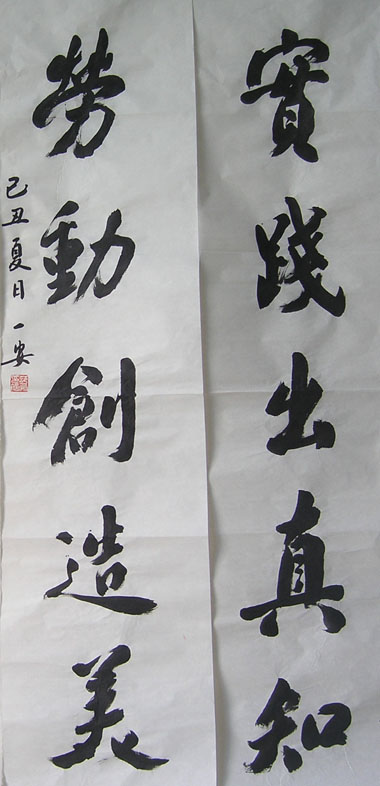 實踐出真知
勞動創造美
己丑夏日一安